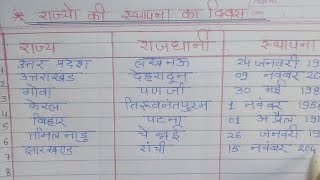 * राज्यो की स्थापना का दिवस *
राज्य राजधानी स्थापना
1 उत्तर प्रदेश लखनऊ 24 जनवरी 19
2 उत्तराखंड देहरादून 09 नवंबर 20
3 गोवा पणजी 30 मई 198
4 केरल तिरुवनंतपुरम 1 नवंबर 195
5 बिहार पटना 01 अप्रैल 19
6 तमिलनाडु चेन्नई 26 जनवरी 19
7 झारखण्ड रांची 15 नवंबर 200
8